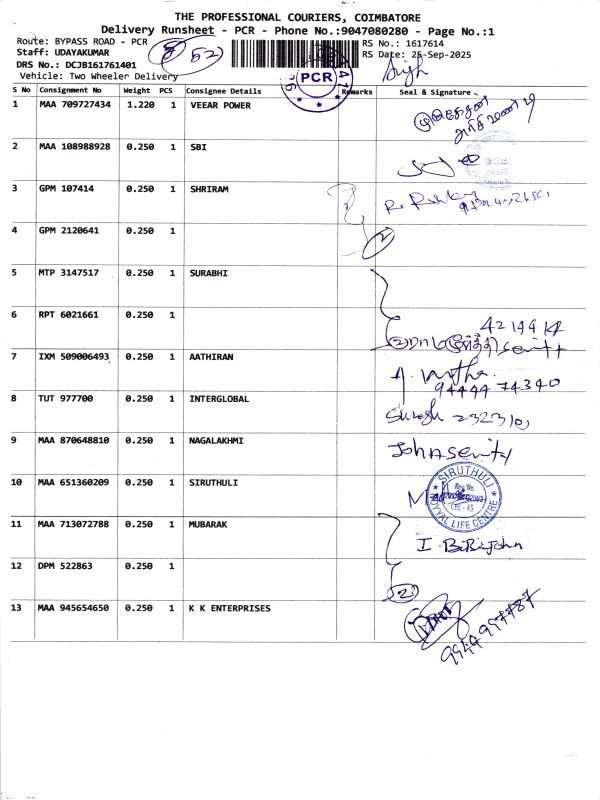 THE PROFESSIONAL COURIERS, COIMBATORE
Delivery Runsheet - PCR - Phone No.:9047080280 - Page No.:1
Route: BYPASS ROAD - PCR
Staff: UDAYAKUMAR
DRS No.: DCJB161761401
Vehicle: Two Wheeler Delivery
8 52
RS No.: 1617614
RS Date: 25-Sep-2025
PCR
S No Consignment No Weight PCS Consignee Details Remarks Seal & Signature
1 MAA 709727434 1.220 1 VEEAR POWER
2 MAA 108988928 0.250 1 SBI
SBI
3 GPM 107414 0.250 1 SHRIRAM
4 GPM 2120641 0.250 1
2
5 MTP 3147517 0.250 1 SURABHI
6 RPT 6021661 0.250 1
7 IXM 509006493 0.250 1 AATHIRAN
94444 74340
8 TUT 977700 0.250 1 INTERGLOBAL
Suresh
9 MAA 870648810 0.250 1 NAGALAKHMI
10 MAA 651360209 0.250 1 SIRUTHULI
SIRUTHULI
UYYAL LIFE CENTRE
CBE - 45.
11 MAA 713072788 0.250 1 MUBARAK
12 DPM 522863 0.250 1
2
13 MAA 945654650 0.250 1 K K ENTERPRISES